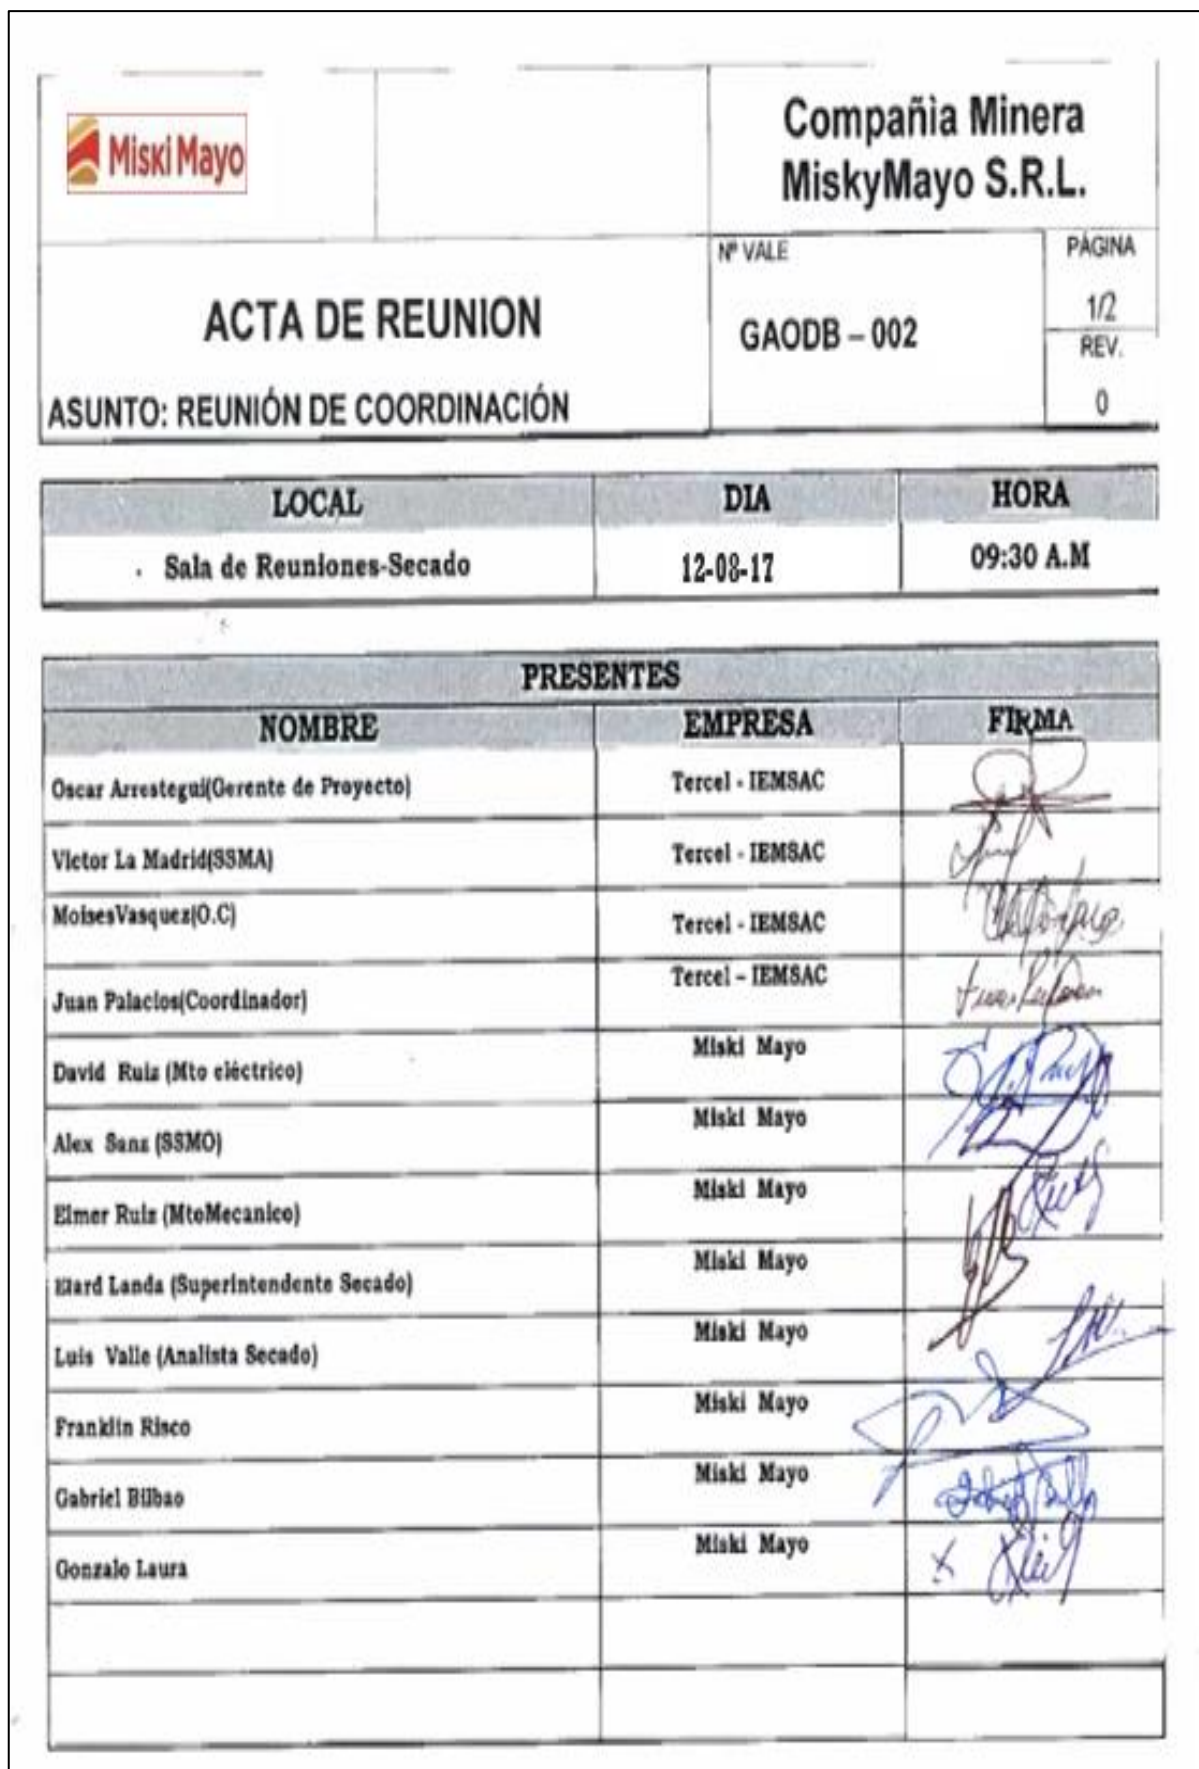 Miski Mayo
Compañìa Minera
MiskyMayo S.R.L.
ACTA DE REUNION
ASUNTO: REUNIÓN DE COORDINACIÓN
Nº VALE
GAODB – 002
PÁGINA
1/2
REV.
0
LOCAL DIA HORA
Sala de Reuniones-Secado 12-08-17 09:30 A.M
PRESENTES
NOMBRE EMPRESA FIRMA
Oscar Arrestegui(Gerente de Proyecto) Tercel - IEMSAC
Victor La Madrid(SSMA) Tercel - IEMSAC
MoisesVasquez(O.C) Tercel - IEMSAC
Juan Palacios(Coordinador) Tercel – IEMSAC
David Ruiz (Mto eléctrico) Miski Mayo
Alex Sanz (SSMO) Miski Mayo
Elmer Ruiz (MtoMecanico) Miski Mayo
Elard Landa (Superintendente Secado) Miski Mayo
Luis Valle (Analista Secado) Miski Mayo
Franklin Risco Miski Mayo
Gabriel Bilbao Miski Mayo
Gonzalo Laura Miski Mayo